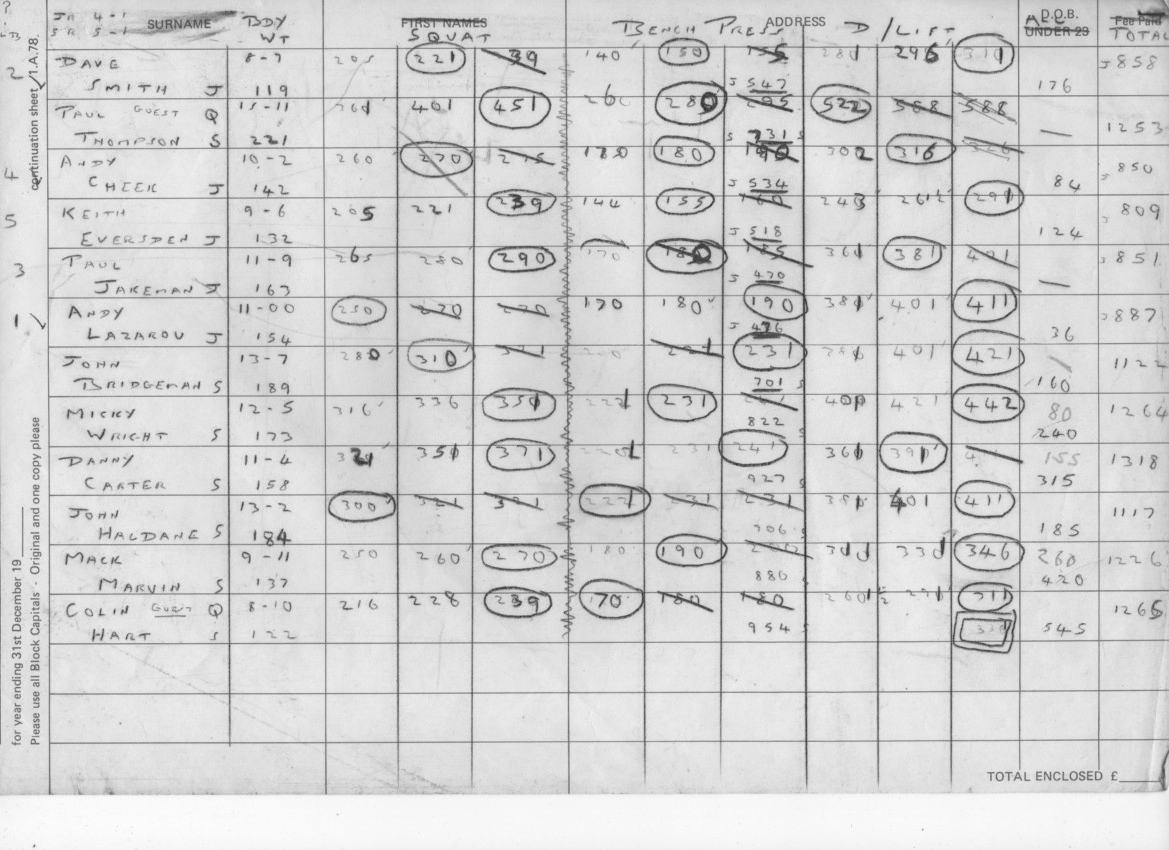 JR 4-1 SURNAME BDY FIRST NAMES BENCH PRESS ADDRESS D/LIFT D.O.B. Fee Paid
SR 5-1 WT SQUAT UNDER 23 TOTAL
2 DAVE 8-7 205 221 39 140 150 155 281 296 311 J 858
SMITH J 119 J 547 176
PAUL GUEST Q 15-11 401 451 260 280 295 522 568 588
THOMPSON S 221 S 731 S — 1253
4 ANDY 10-2 260 270 275 180 190 302 316 J 850
CHEEK J 142 J 534 84
5 KEITH 9-6 205 221 239 144 155 160 243 291 J 809
EVERSDEN J 132 J 518 124
3 PAUL 11-9 265 280 290 170 180 185 361 381 401 J 851
JAKEMAN J 163 J 470 —
1 ANDY 11-00 250 270 270 170 180 190 381 401 411 J 887
LAZAROU J 154 J 436 36
JOHN 13-7 280 310 231 401 421 1122
BRIDGEMAN S 189 701 S 160
MICKY 12-5 316 336 351 231 401 421 442 80 1264
WRIGHT S 173 822 S 240
DANNY 11-4 321 351 371 231 241 361 391 155 1318
CARTER S 158 927 S 315
JOHN 13-2 300 321 221 231 231 391 401 411 1117
HALDANE S 184 706 S 185
MACK 9-11 250 260 270 180 190 200 331 346 260 1226
MARVIN S 137 880 S 420
COLIN GUEST Q 8-10 216 228 239 170 180 180 311 1265
HART S 122 954 S 545
TOTAL ENCLOSED £
continuation sheet 1.A.78.
for year ending 31st December 19
Please use all Block Capitals - Original and one copy please